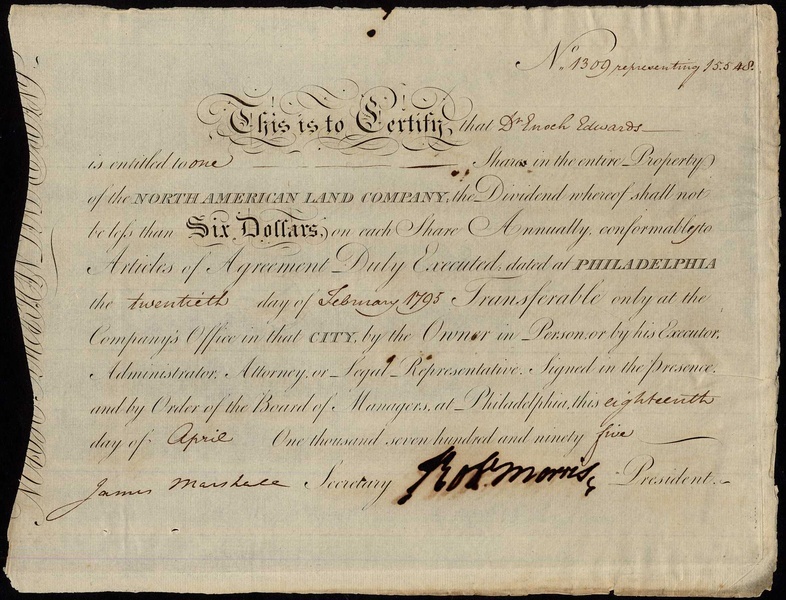 No. 1309 representing 15548.
This is to Certify, that Dr. Enoch Edwards
is entitled to one Share in the entire Property
of the NORTH AMERICAN LAND COMPANY, the Dividend whereof shall not
be less than Six Dollars, on each Share Annually, conformably to
Articles of Agreement Duly Executed; dated at PHILADELPHIA
the twentieth day of February 1795 Transferable only at the
Company's Office in that CITY, by the Owner in Person, or by his Executor,
Administrator, Attorney, or Legal Representative. Signed in the presence,
and by Order of the Board of Managers, at Philadelphia, this eighteenth
day of April One thousand seven hundred and ninety five
James Marshall Secretary Robt. Morris, President.